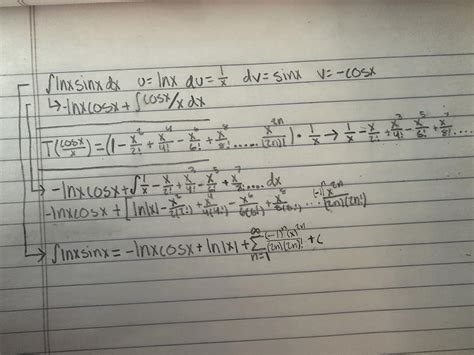 ∫lnxsinxdx u=lnx du=1/x dv=sinx v=-cosx
↳-lnxcosx+∫cosx/x dx
T(cosx/x)=(1-x²/2!+x⁴/4!-x⁶/6!+x⁸/8!.....x²ⁿ/(2n)!)·1/x→1/x-x/2!+x³/4!-x⁵/6!+x⁷/8!...
→-lnxcosx+∫1/x-x/2!+x³/4!-x⁵/6!+x⁷/8!.....dx
-lnxcosx+[ln|x|-x²/2(2!)+x⁴/4(4!)-x⁶/6(6!)+x⁸/8(8!)...(-1)ⁿx²ⁿ/(2n)(2n!)
→∫lnxsinx=-lnxcosx+ln|x|+∞∑n=1 (-1)ⁿ(x)²ⁿ/(2n)(2n)!+C